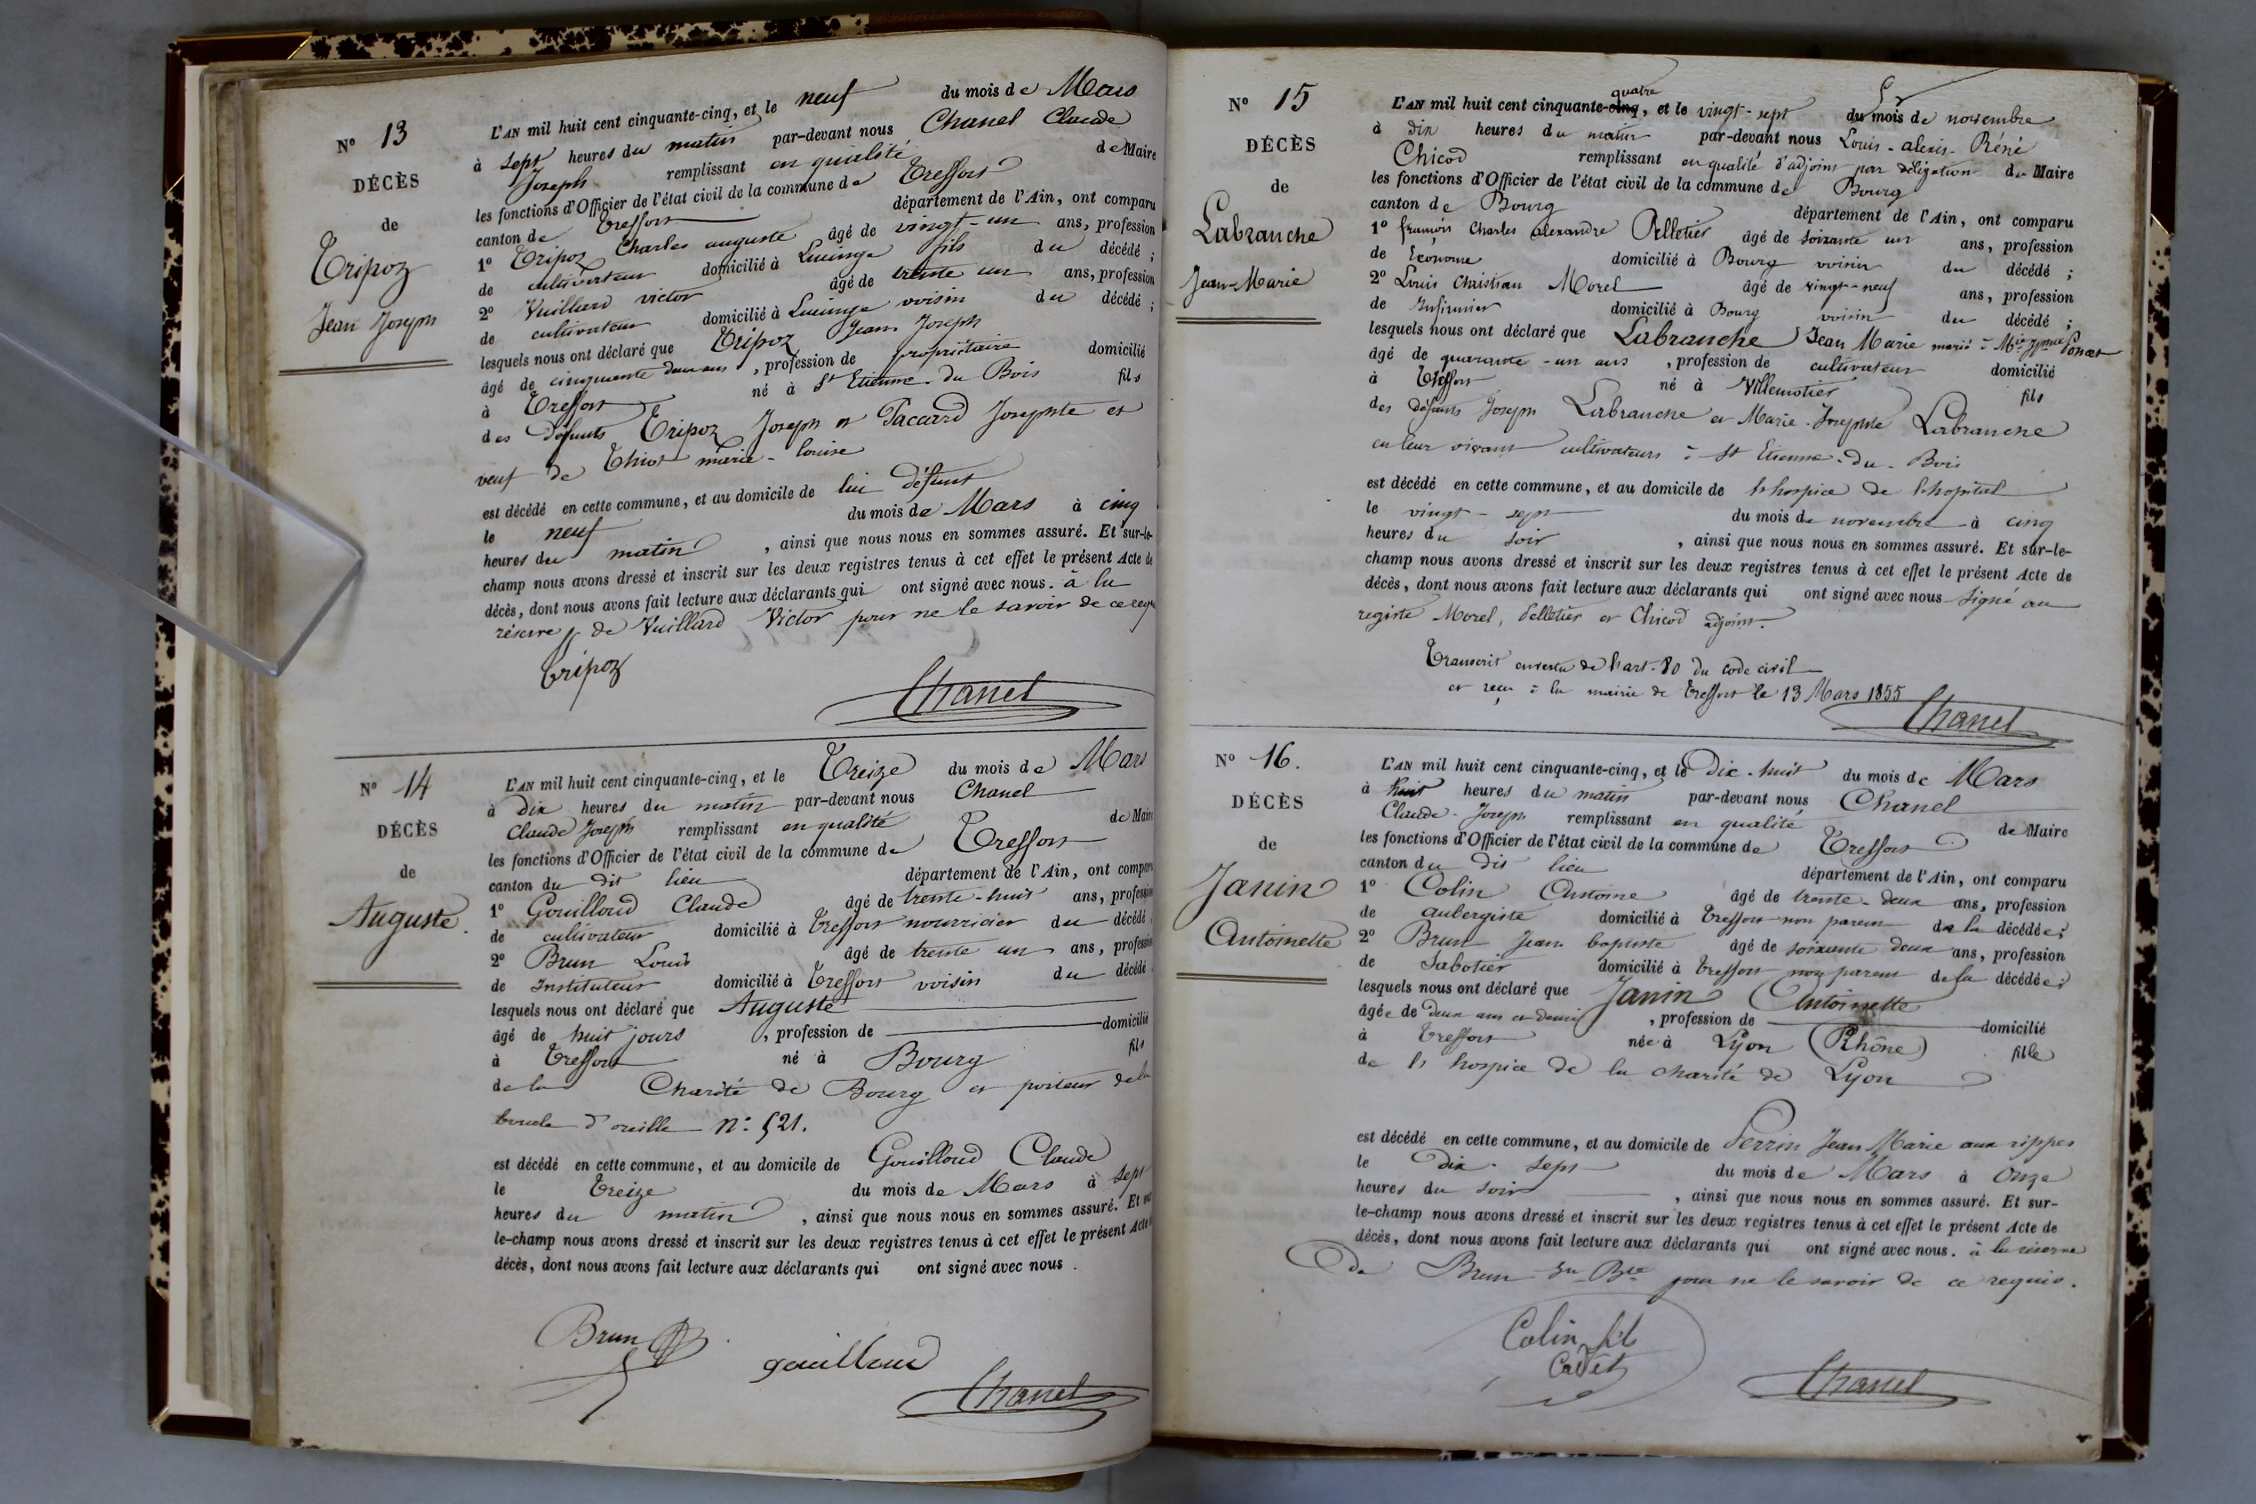 N° 13
DÉCÈS
de
Tripoz
Jean Joseph
L'AN mil huit cent cinquante-cinq, et le neuf du mois de Mars
à sept heures du matin par-devant nous Chanel Claude
Joseph remplissant en qualité de Maire
les fonctions d'Officier de l'état civil de la commune de Treffort
canton de Treffort département de l'Ain, ont comparu
1° Tripoz Charles auguste âgé de vingt-un ans, profession
de cultivateur domicilié à Lucinge fils du décédé ;
2° Vuillard victor âgé de trente un ans, profession
de cultivateur domicilié à Lucinge voisin du décédé ;
lesquels nous ont déclaré que Tripoz Jean Joseph
âgé de cinquante deux ans, profession de propriétaire domicilié
à Treffort né à St Etienne-du Bois fils
des défunts Tripoz Joseph et Pacard Josephte et
veuf de Thiot marie-louise
est décédé en cette commune, et au domicile de lui défunt
le neuf du mois de Mars à cinq
heures du matin, ainsi que nous nous en sommes assuré. Et sur-le-
champ nous avons dressé et inscrit sur les deux registres tenus à cet effet le présent Acte de
décès, dont nous avons fait lecture aux déclarants qui ont signé avec nous. à la
réserve de Vuillard Victor pour ne le savoir de ce requis
Tripoz
Chanel
N° 14
DÉCÈS
de
Auguste.
L'AN mil huit cent cinquante-cinq, et le Treize du mois de Mars
à Dix heures du matin par-devant nous Chanel
Claude Joseph remplissant en qualité de Maire
les fonctions d'Officier de l'état civil de la commune de Treffort
canton du dit lieu département de l'Ain, ont comparu
1° Gouilloud Claude âgé de trente-huit ans, profession
de cultivateur domicilié à Treffort nourricier du décédé
2° Brun Louis âgé de trente un ans, profession
de Instituteur domicilié à Treffort voisin du décédé
lesquels nous ont déclaré que Auguste
âgé de huit jours, profession de domicilié
à Treffort né à Bourg fils
de la Charité de Bourg et porteur de la
boucle d'oreille N° 521.
est décédé en cette commune, et au domicile de Gouilloud Claude
le Treize du mois de Mars à sept
heures du matin, ainsi que nous nous en sommes assuré. Et sur
le-champ nous avons dressé et inscrit sur les deux registres tenus à cet effet le présent Acte de
décès, dont nous avons fait lecture aux déclarants qui ont signé avec nous.
Brun
gouilloud
Chanel
N° 15
DÉCÈS
de
Labranche
Jean-Marie
quatre
L'AN mil huit cent cinquante-cinq, et le vingt-sept du mois de novembre
à dix heures du matin par-devant nous Louis-alexis-Réné
Chicod remplissant en qualité d'adjoint par délégation du Maire
les fonctions d'Officier de l'état civil de la commune de Bourg
canton de Bourg département de l'Ain, ont comparu
1° françois Charles alexandre Pelletier âgé de soixante un ans, profession
de Econome domicilié à Bourg voisin du décédé ;
2° Louis Christian Morel âgé de vingt-neuf ans, profession
de Infirmier domicilié à Bourg voisin du décédé ;
lesquels nous ont déclaré que Labranche Jean Marie marié à Mie Jphte Poncet
âgé de quarante-un ans, profession de cultivateur domicilié
à Treffort né à Villemotier fils
des défunts Joseph Labranche et Marie-Josephte Labranche
en leur vivant cultivateurs à St Etienne-du-Bois
est décédé en cette commune, et au domicile de l'hospice de l'hopital
le vingt-sept du mois de novembre à cinq
heures du soir, ainsi que nous nous en sommes assuré. Et sur-le-
champ nous avons dressé et inscrit sur les deux registres tenus à cet effet le présent Acte de
décès, dont nous avons fait lecture aux déclarants qui ont signé avec nous signé au
registre Morel, Pelletier et Chicod adjoint.
Transcrit en vertu de l'art. 80 du code civil
et reçu à la mairie de Treffort le 13 Mars 1855
Chanel
N° 16.
DÉCÈS
de
Janin
Antoinette
L'AN mil huit cent cinquante-cinq, et le Dix-huit du mois de Mars
à huit heures du matin par-devant nous Chanel
Claude-Joseph remplissant en qualité de Maire
les fonctions d'Officier de l'état civil de la commune de Treffort
canton du dit lieu département de l'Ain, ont comparu
1° Colin Antoine âgé de trente-deux ans, profession
de aubergiste domicilié à Treffort non parent de la décédée ;
2° Brun Jean baptiste âgé de soixante deux ans, profession
de Sabotier domicilié à Treffort non parent de la décédée ;
lesquels nous ont déclaré que Janin Antoinette
âgée de deux ans et demi, profession de domicilié
à Treffort née à Lyon (Rhône) fille
de l'hospice de la charité de Lyon
est décédé en cette commune, et au domicile de Perrin Jean Marie aux rippes
le Dix-sept du mois de Mars à onze
heures du soir, ainsi que nous nous en sommes assuré. Et sur-
le-champ nous avons dressé et inscrit sur les deux registres tenus à cet effet le présent Acte de
décès, dont nous avons fait lecture aux déclarants qui ont signé avec nous. à la réserve
De Brun Jn Bte pour ne le savoir de ce requis.
Colin fils
Cadet
Chanel